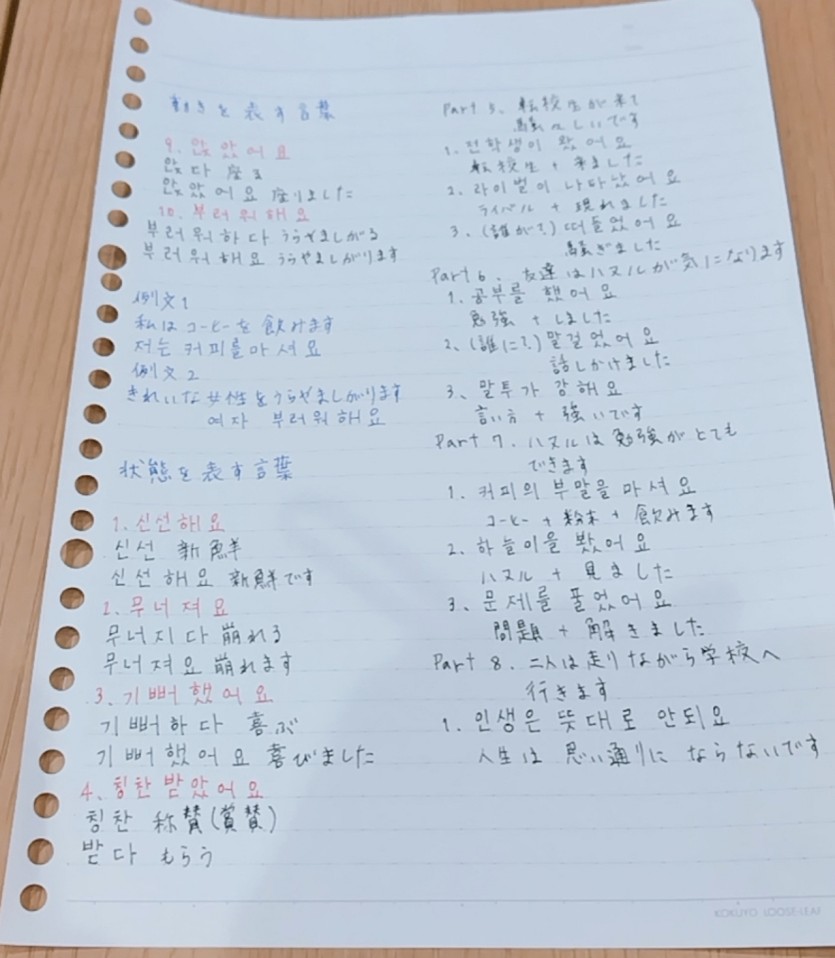 動きを表す言葉
9. 앉았어요
앉다 座る
앉았어요 座りました
10. 부러워해요
부러워하다 うらやましがる
부러워해요 うらやましがります
例文1
私はコーヒーを飲みます
저는 커피를 마셔요
例文2
きれいな女性をうらやましがります
여자 부러워해요
状態を表す言葉
1. 신선해요
신선 新鮮
신선해요 新鮮です
2. 무너져요
무너지다 崩れる
무너져요 崩れます
3. 기뻐했어요
기뻐하다 喜ぶ
기뻐했어요 喜びました
4. 칭찬받았어요
칭찬 称賛(賞賛)
받다 もらう
Part 5. 転校生が来て
騒々しいです
1. 전학생이 왔어요
転校生 + 来ました
2. 라이벌이 나타났어요
ライバル + 現れました
3. (誰が?) 떠들었어요
騒ぎました
Part 6. 友達はハヌルが気になります
1. 공부를 했어요
勉強 + しました
2. (誰に?) 말걸었어요
話しかけました
3. 말투가 강해요
言い方 + 強いです
Part 7. ハヌルは勉強がとても
できます
1. 커피의 부말을 마셔요
コーヒー + 粉末 + 飲みます
2. 하늘이을 봤어요
ハヌル + 見ました
3. 문제를 풀었어요
問題 + 解きました
Part 8. 二人は走りながら学校へ
行きます
1. 인생은 뜻대로 안되요
人生は 思い通りに ならないです
KOKUYO LOOSE-LEAF